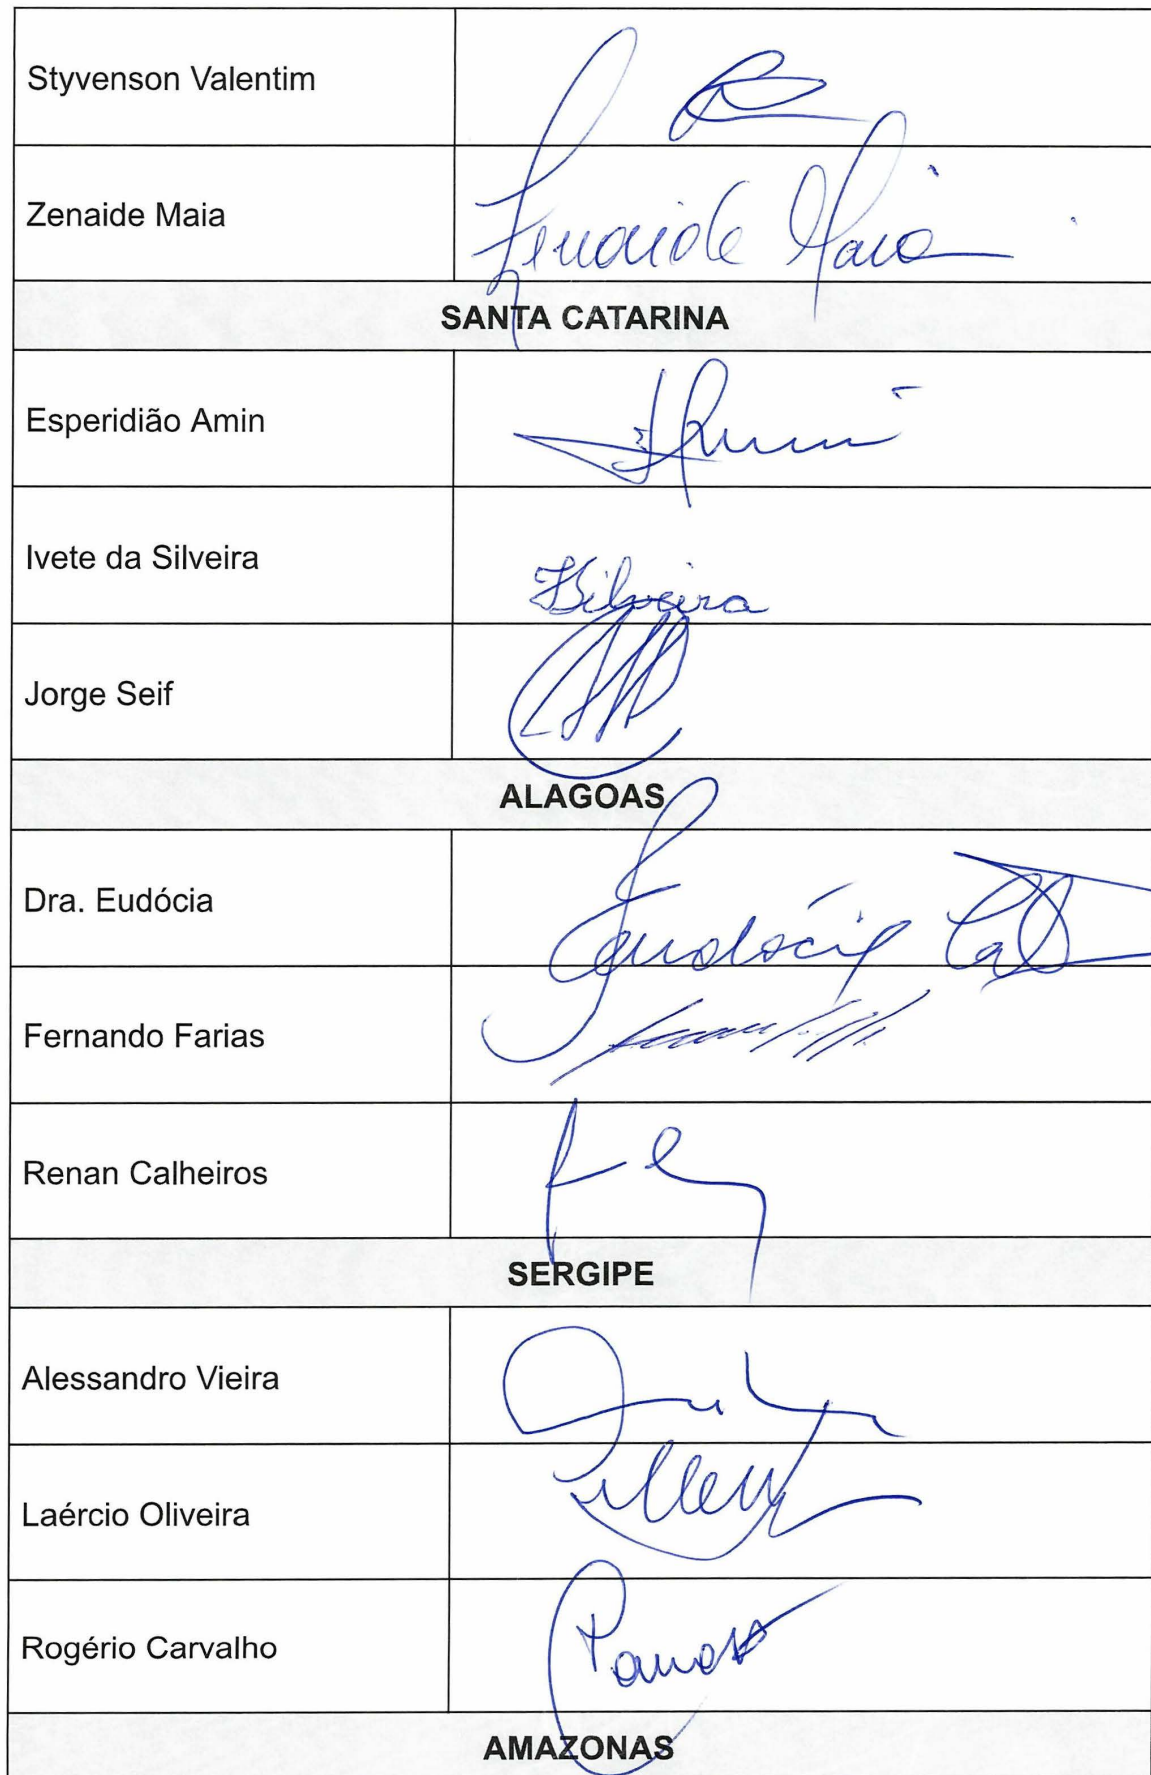 Styvenson Valentim
Zenaide Maia
Zenaide Maia
SANTA CATARINA
Esperidião Amin
Ivete da Silveira
ISilveira
Jorge Seif
ALAGOAS
Dra. Eudócia
Eudócia
Fernando Farias
Renan Calheiros
SERGIPE
Alessandro Vieira
Laércio Oliveira
Rogério Carvalho
AMAZONAS